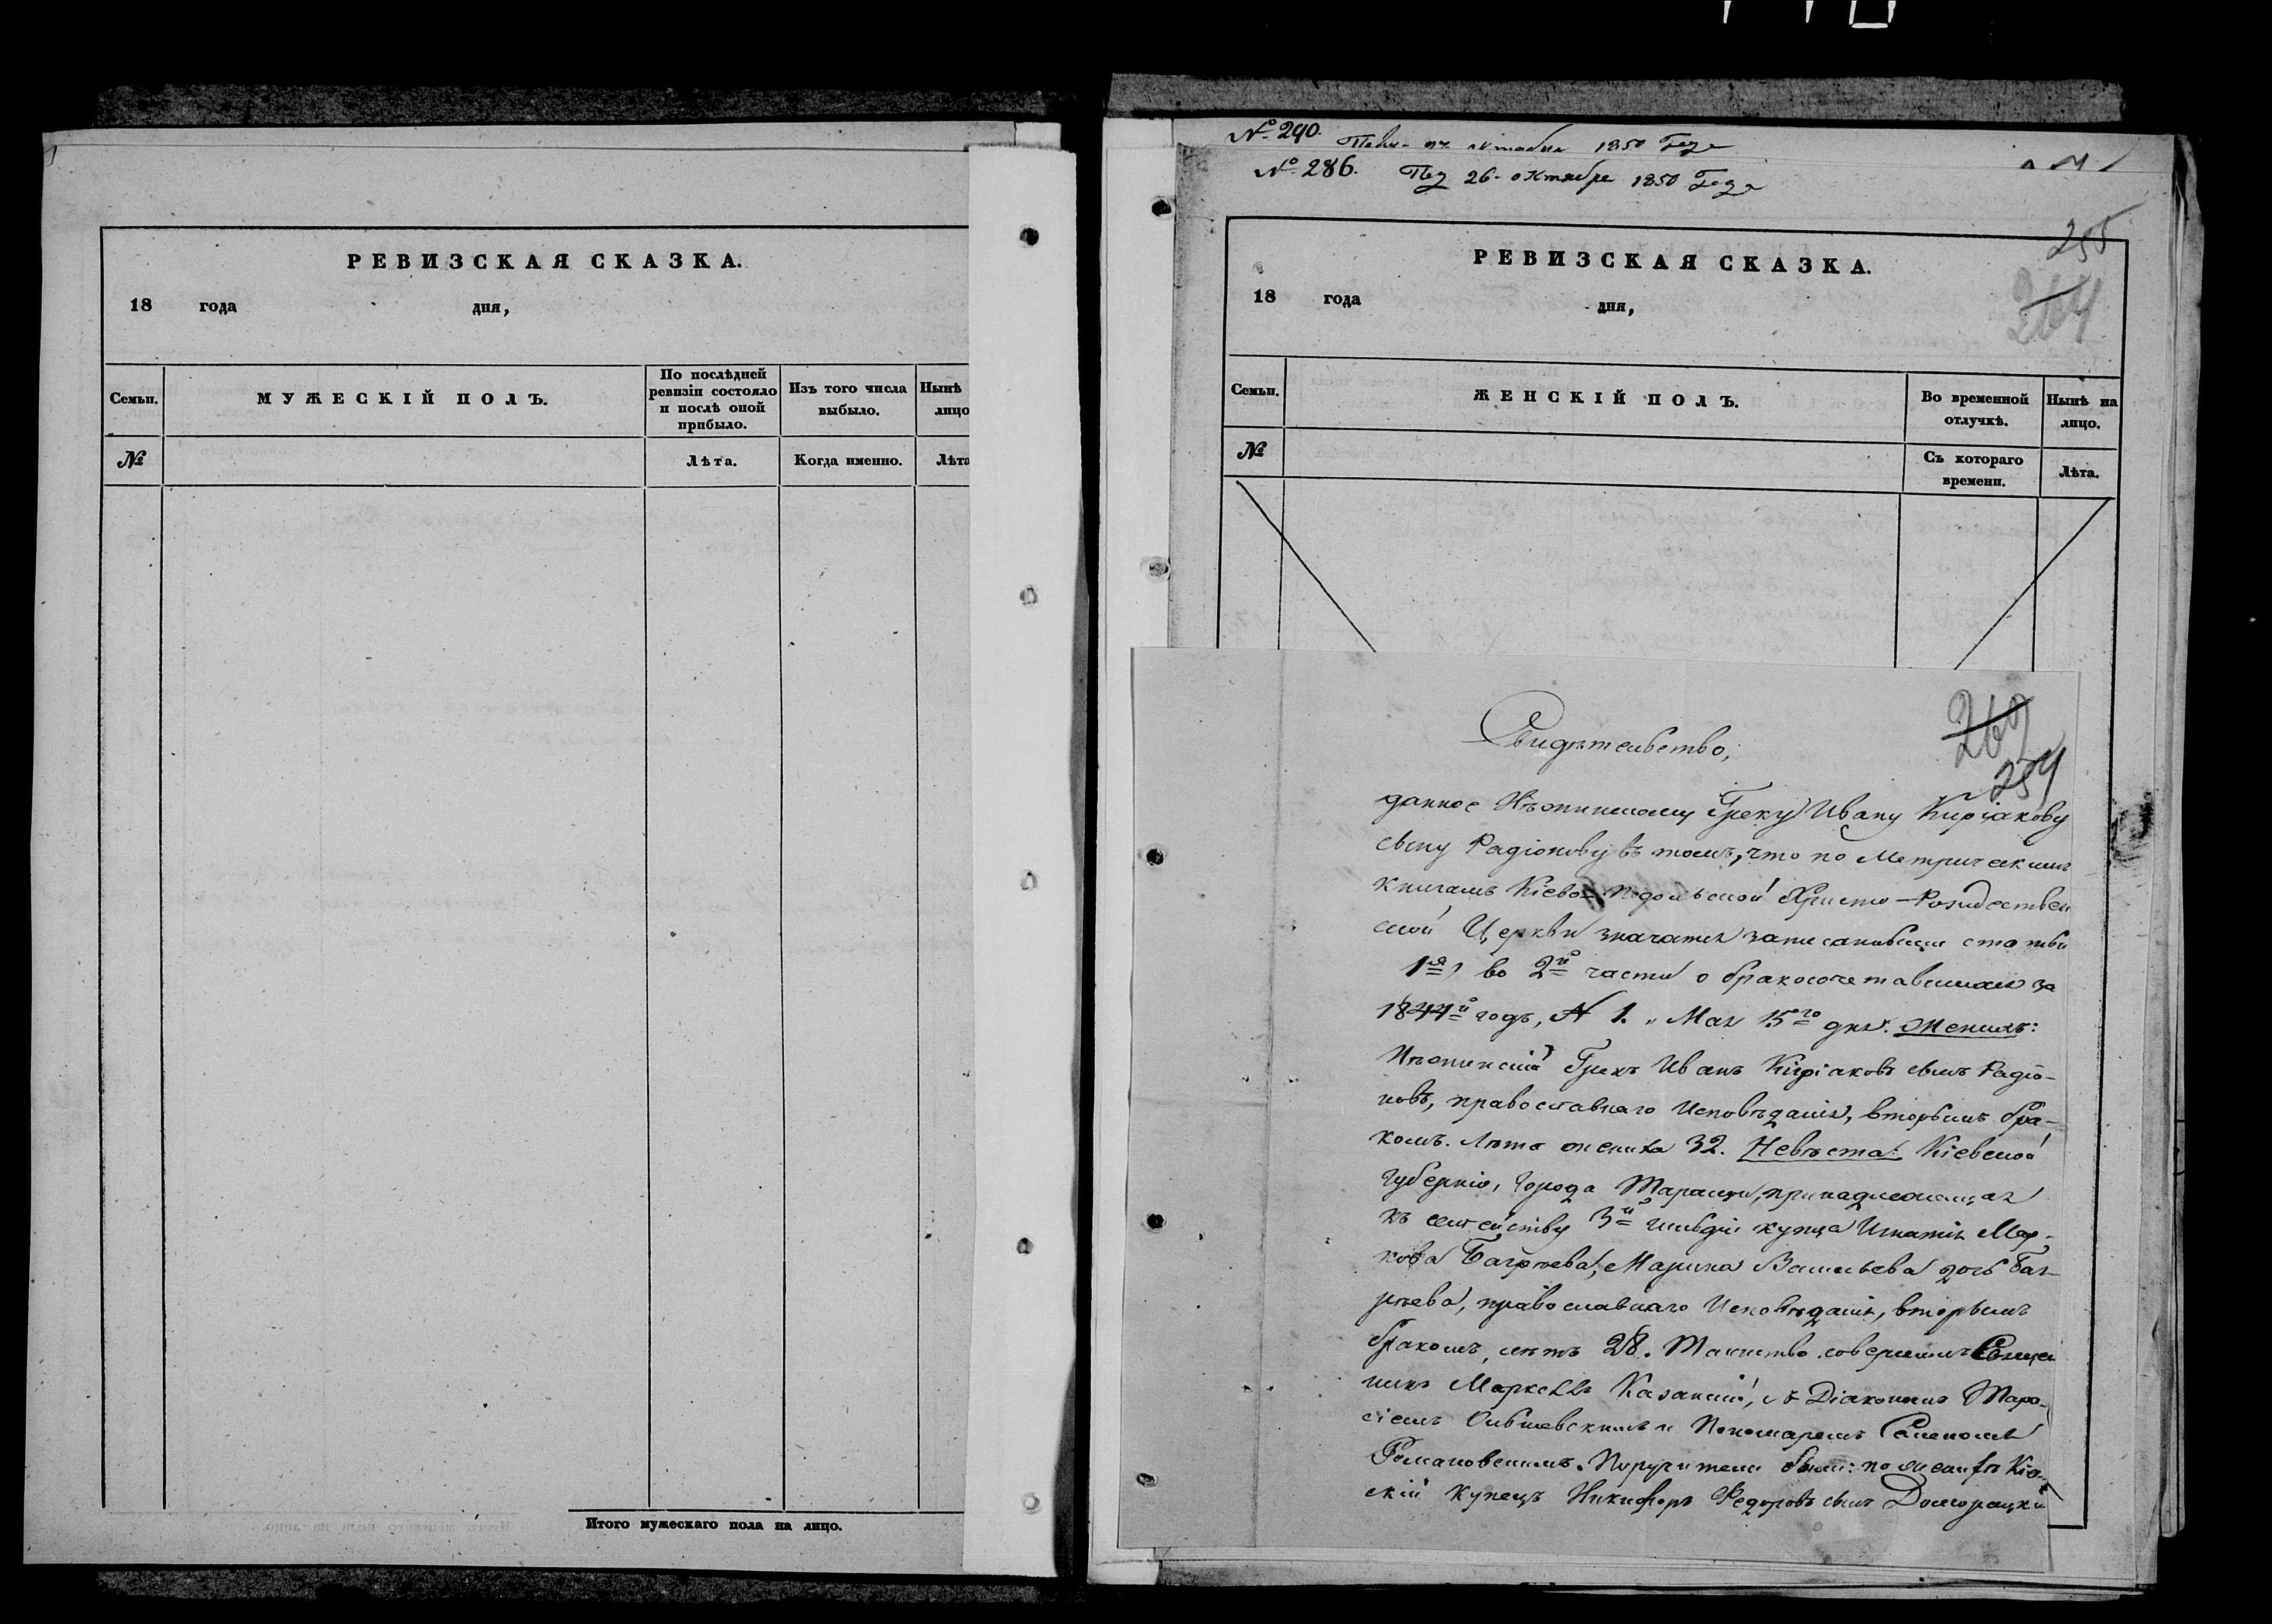 РЕВИЗСКАЯ СКАЗКА.
18 года дня,
Семьи. МУЖЕСКІЙ ПОЛЪ. По послѣдней ревизіи состояло и послѣ оной прибыло. Изъ того числа выбыло. Нынѣ лицо
№ Лѣта. Когда именно. Лѣта
Итого мужескаго пола на лицо.
№ 290. октября 1850 Года
№ 286. Под 26 октября 1850 Года
255
264
РЕВИЗСКАЯ СКАЗКА.
18 года дня,
Семьи. ЖЕНСКІЙ ПОЛЪ. Во временной отлучкѣ. Нынѣ на лицо.
№ Съ котораго времени. Лѣта.
269
254
Свидѣтельство,
данное Нѣжинскому Греку Ивану Киріакову
сыну Радіонову въ томъ, что по Метрическимъ
книгамъ Кіево-Подольской Христо-Рождествен
ской Церкви значатся записанными статьи
1я, во 2й части о бракосочетавшихся за
1844й годъ, № 1. „Мая 15го дня. Женихъ:
Нѣжинскій Грекъ Иванъ Киріаковъ сынъ Радіо-
новъ, православнаго Исповѣданія, вторымъ бра-
комъ. Лѣта жениха 32. Невѣста: Кіевской
Губерніи, города Таращи, принадлежащая
къ семейству 3й гильдіи купца Игнатія Мар-
кова Багрѣева, Марина Васильева дочь Баг-
рѣева, православнаго Исповѣданія, вторымъ
бракомъ, лѣтъ 28. Таинство совершилъ Священ
никъ Маркеллъ Казанскій, съ Діакономъ Тара-
сіемъ и Пономаремъ Семеномъ
Романовскимъ. Поручители были: по женихѣ Кіев-
скій купецъ Никифоръ Федоровъ сынъ